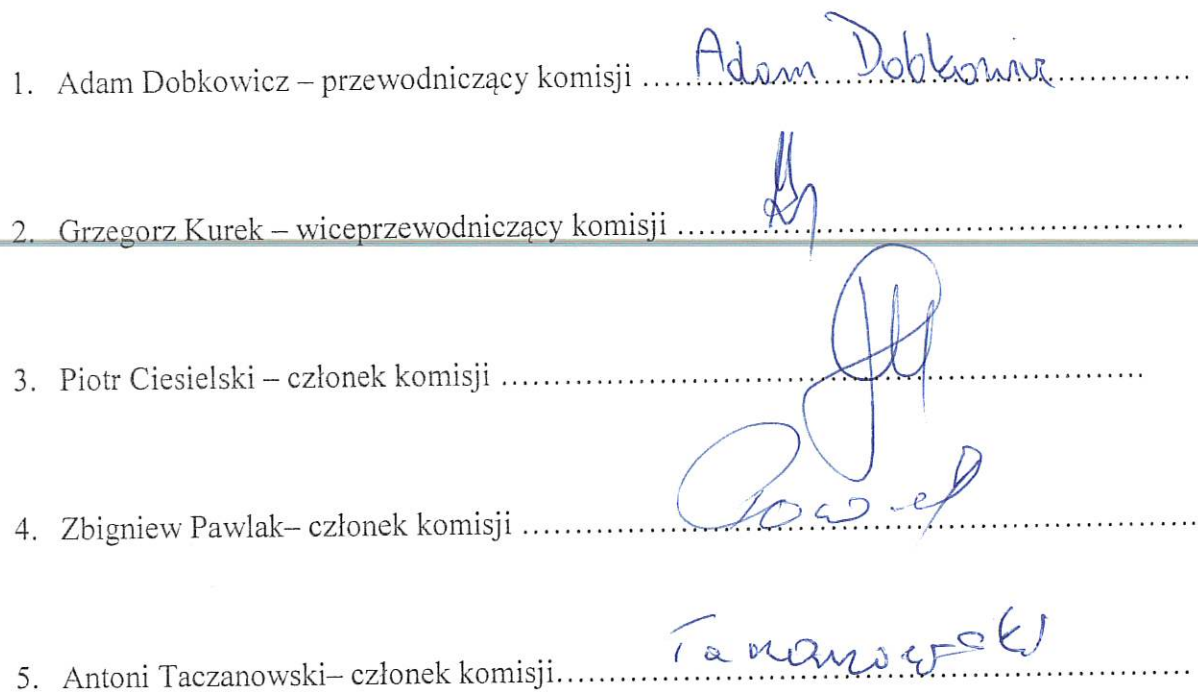 1. Adam Dobkowicz – przewodniczący komisji ........Adam Dobkowicz........
2. Grzegorz Kurek – wiceprzewodniczący komisji ................................
3. Piotr Ciesielski – członek komisji ................................
4. Zbigniew Pawlak– członek komisji ................................
5. Antoni Taczanowski– członek komisji........Taczanowski........